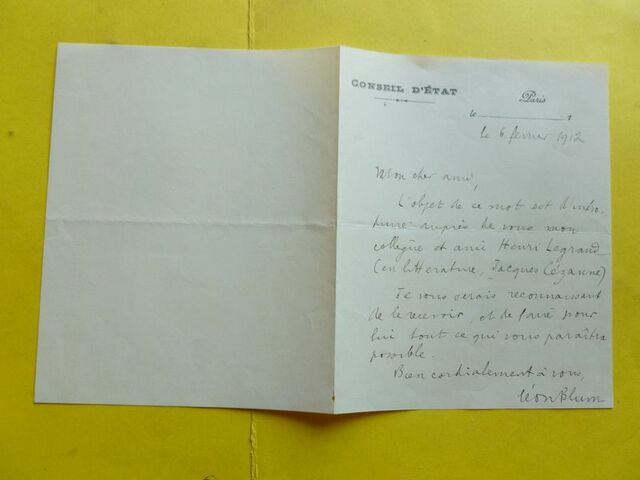 CONSEIL D'ÉTAT
Paris
le 1
le 6 février 1912
Mon cher ami,
L'objet de ce mot est d'intro-
duire auprès de vous mon
collègue et ami Henri Legrand
(en littérature, Jacques Cézanne)
Je vous serais reconnaissant
de le recevoir, et de faire pour
lui tout ce qui vous paraîtra
possible.
Bien cordialement à vous,
Léon Blum